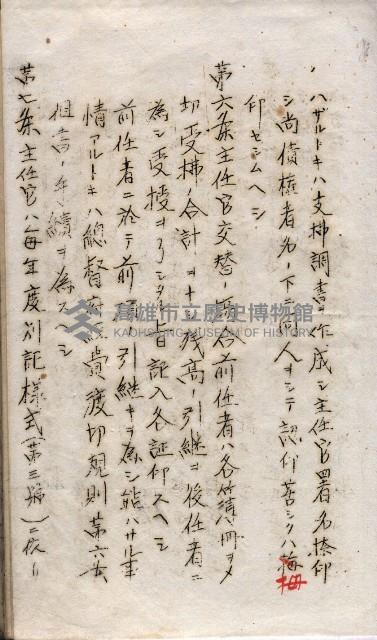 ハザルトキハ支拂調書ヲ作成シ主任官署名捺印
シ尚債権者名ノ下ニ同人ヲシテ認印若シクハ拇
拇
印セシムヘシ
第六条主任官交替ノ場合前任者ハ各簿冊ヲ〆
切受拂ノ合計ヲナシ残高ノ引継ヲ後任者ニ
為シ受授ヲ了シタル日記入各証印スヘシ
前任者ニ於テ前項ノ引継キヲ為シ能ハサル事
情アルトキハ總督府経費渡切規則第六条
但書ノ手續ヲ為スヘシ
第七条主任官ハ毎年度別記様式(第三號)ニ依リ
高雄市立歷史博物館
KAOHSIUNG MUSEUM OF HISTORY